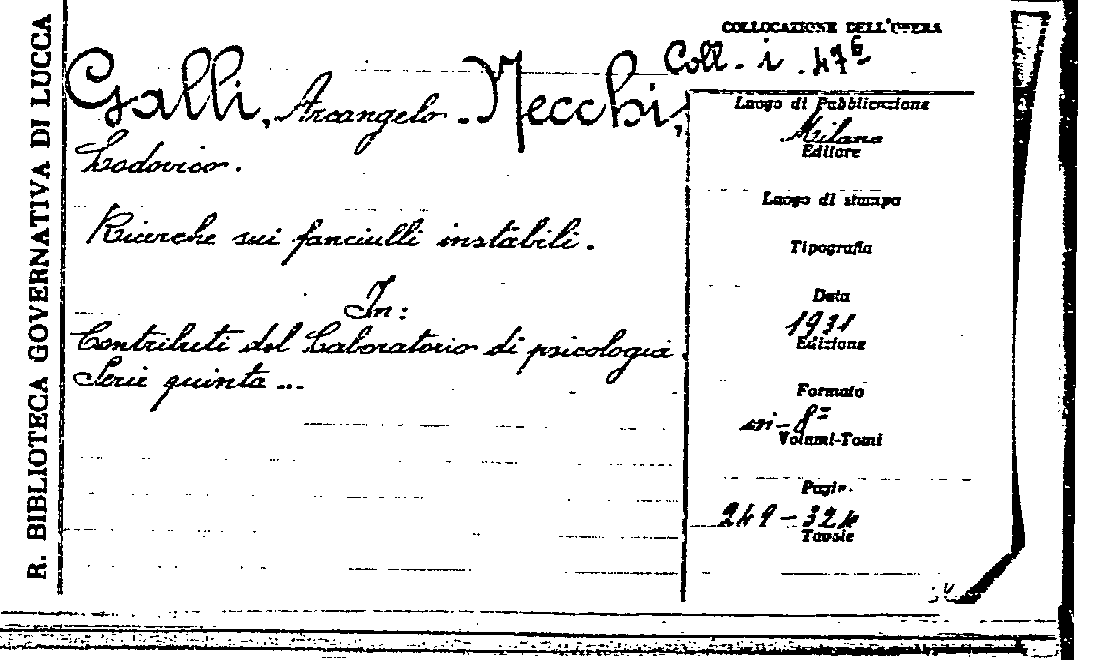 R. BIBLIOTECA GOVERNATIVA DI LUCCA
COLLOCAZIONE DELL'OPERA
Coll. i. 47⁶
Galli, Arcangelo. - Necchi,
Lodovico.
Ricerche sui fanciulli instabili.
In:
Contributi del Laboratorio di psicologia.
Serie quinta ...
Luogo di Pubblicazione
Milano
Editore
Luogo di stampa
Tipografia
Data
1931
Edizione
Formato
in-8º
Volumi-Tomi
Pagin.
Tavole